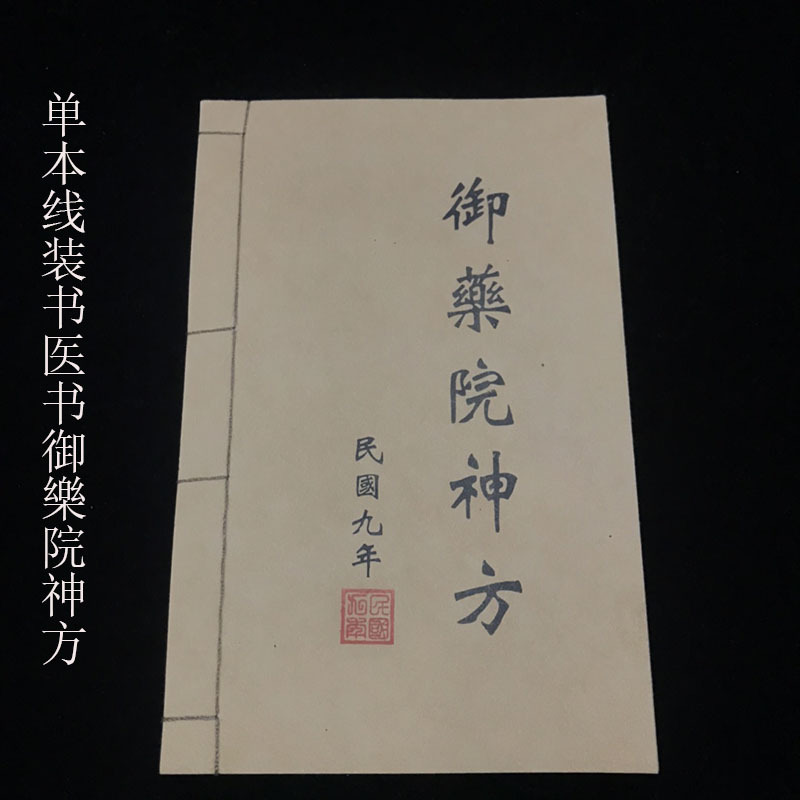 单本线装书医书御樂院神方
御藥院神方
民國九年